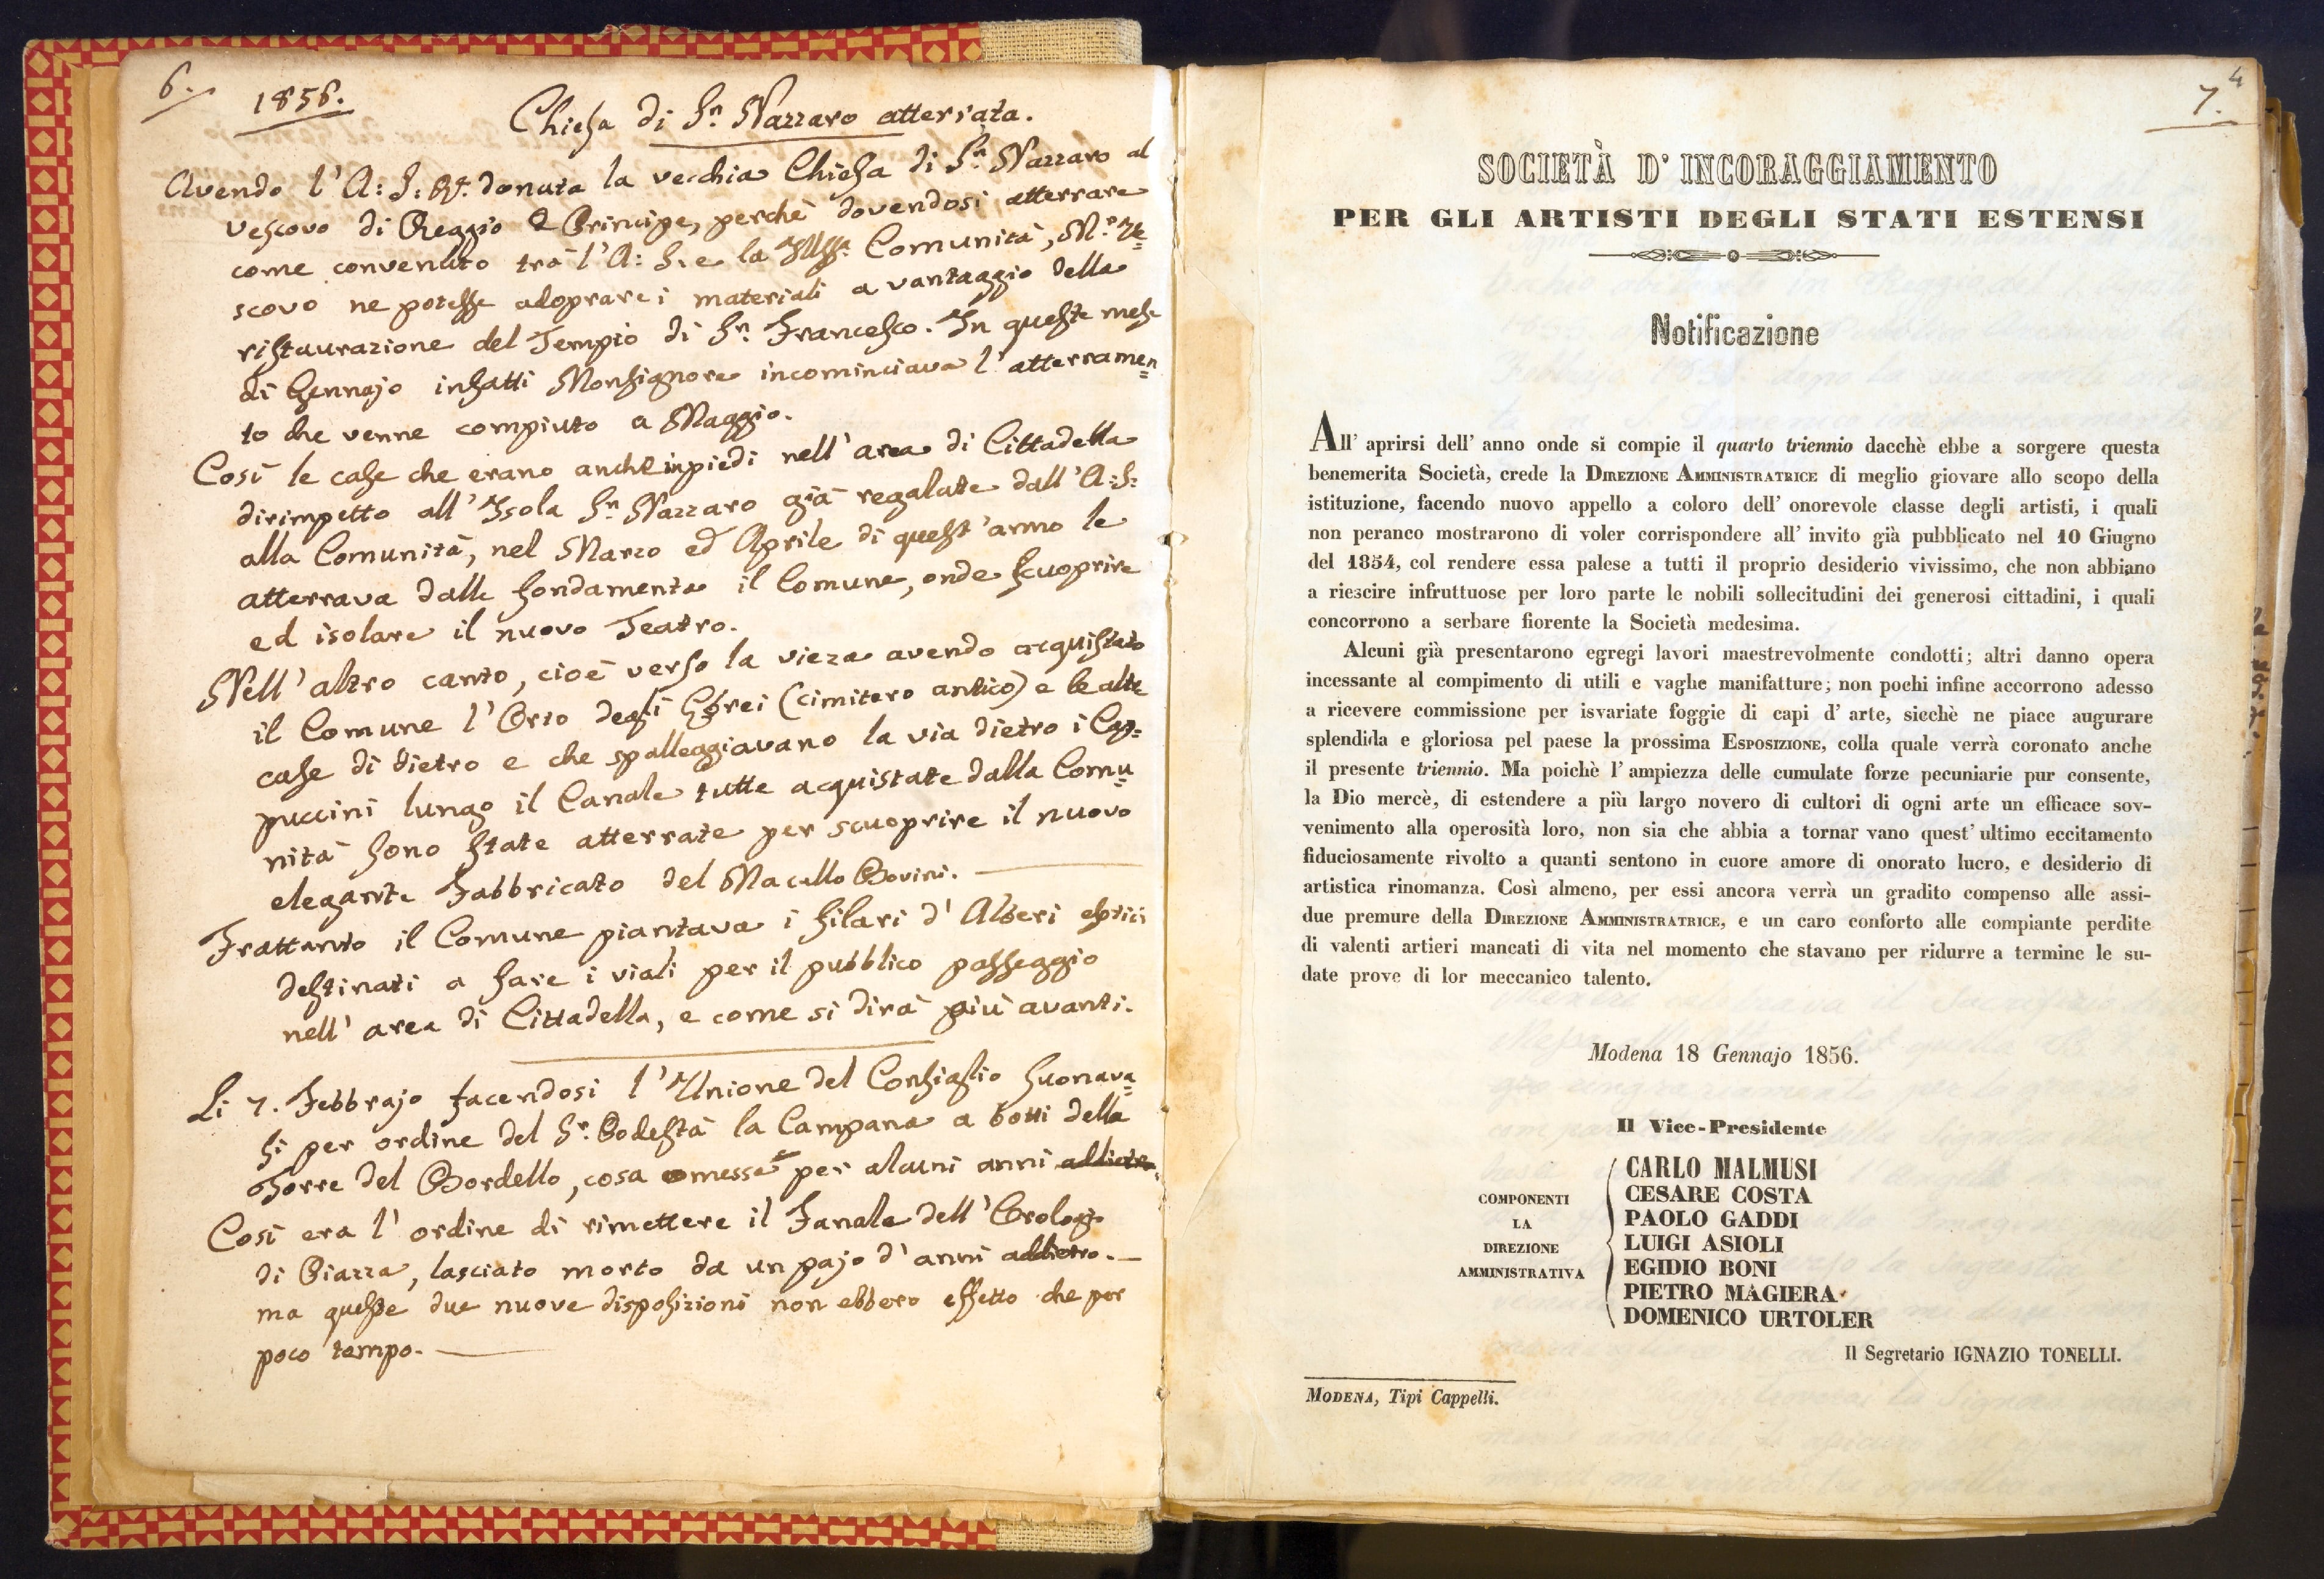 6.
1856.
Chiesa di Sn. Nazzaro atterrata.
Avendo l'A: S: R. donata la vecchia Chiesa di Sn. Nazzaro al
Vescovo di Reggio e Principe, perchè dovendosi atterrare
come convenuto trà l'A: S. e la Comunità, M.r Ve=
scovo ne potesse adoprare i materiali a vantaggio della
ristaurazione del Tempio di Sn. Francesco. In questo mese
di Gennajo infatti Monsignore incominciava l'atterramen=
to che venne compiuto a Maggio.
Così le case che erano anche in piedi nell'area di Cittadella
dirimpetto all'Isola Sn. Nazzaro già regalate dall'A: S:
alla Comunità, nel Marzo ed Aprile di quest'anno le
atterrava dalle fondamenta il Comune, onde scuoprire
ed isolare il nuovo Teatro.
Nell'altro canto, cioè verso la vieza avendo acquistato
il Comune l'Orto degli Ebrei (cimitero antico) e le altre
case di dietro e che spalleggiavano la via dietro i Cap=
puccini lungo il Canale tutte acquistate dalla Comu=
nità sono state atterrate per scuoprire il nuovo
elegante Fabbricato del Macello Bovini.
Frattanto il Comune piantava i filari d'Alberi
destinati a fare i viali per il pubblico passeggio
nell'area di Cittadella, e come si dirà più avanti.
Li 7. Febbrajo facendosi l'Unione del Consiglio suonava=
si per ordine del Sr. Podestà la Campana a botti della
Torre del Bordello, cosa omessa per alcuni anni addietro.
Così era l'ordine di rimettere il Fanale dell'Orologio
di Piazza, lasciato morto da un pajo d'anni addietro.
ma queste due nuove disposizioni non ebbero effetto che per
poco tempo.
4
7.
SOCIETÀ D' INCORAGGIAMENTO
PER GLI ARTISTI DEGLI STATI ESTENSI
Notificazione
All' aprirsi dell' anno onde si compie il quarto triennio dacchè ebbe a sorgere questa
benemerita Società, crede la DIREZIONE AMMINISTRATRICE di meglio giovare allo scopo della
istituzione, facendo nuovo appello a coloro dell' onorevole classe degli artisti, i quali
non peranco mostrarono di voler corrispondere all' invito già pubblicato nel 10 Giugno
del 1854, col rendere essa palese a tutti il proprio desiderio vivissimo, che non abbiano
a riescire infruttuose per loro parte le nobili sollecitudini dei generosi cittadini, i quali
concorrono a serbare fiorente la Società medesima.
Alcuni già presentarono egregi lavori maestrevolmente condotti; altri danno opera
incessante al compimento di utili e vaghe manifatture; non pochi infine accorrono adesso
a ricevere commissione per isvariate foggie di capi d' arte, sicchè ne piace augurare
splendida e gloriosa pel paese la prossima ESPOSIZIONE, colla quale verrà coronato anche
il presente triennio. Ma poichè l' ampiezza delle cumulate forze pecuniarie pur consente,
la Dio mercè, di estendere a più largo novero di cultori di ogni arte un efficace sov-
venimento alla operosità loro, non sia che abbia a tornar vano quest' ultimo eccitamento
fiduciosamente rivolto a quanti sentono in cuore amore di onorato lucro, e desiderio di
artistica rinomanza. Così almeno, per essi ancora verrà un gradito compenso alle assi-
due premure della DIREZIONE AMMINISTRATRICE, e un caro conforto alle compiante perdite
di valenti artieri mancati di vita nel momento che stavano per ridurre a termine le su-
date prove di lor meccanico talento.
Modena 18 Gennajo 1856.
Il Vice-Presidente
CARLO MALMUSI
COMPONENTI LA DIREZIONE AMMINISTRATIVA
CESARE COSTA
PAOLO GADDI
LUIGI ASIOLI
EGIDIO BONI
PIETRO MAGIERA
DOMENICO URTOLER
Il Segretario IGNAZIO TONELLI.
MODENA, Tipi Cappelli.